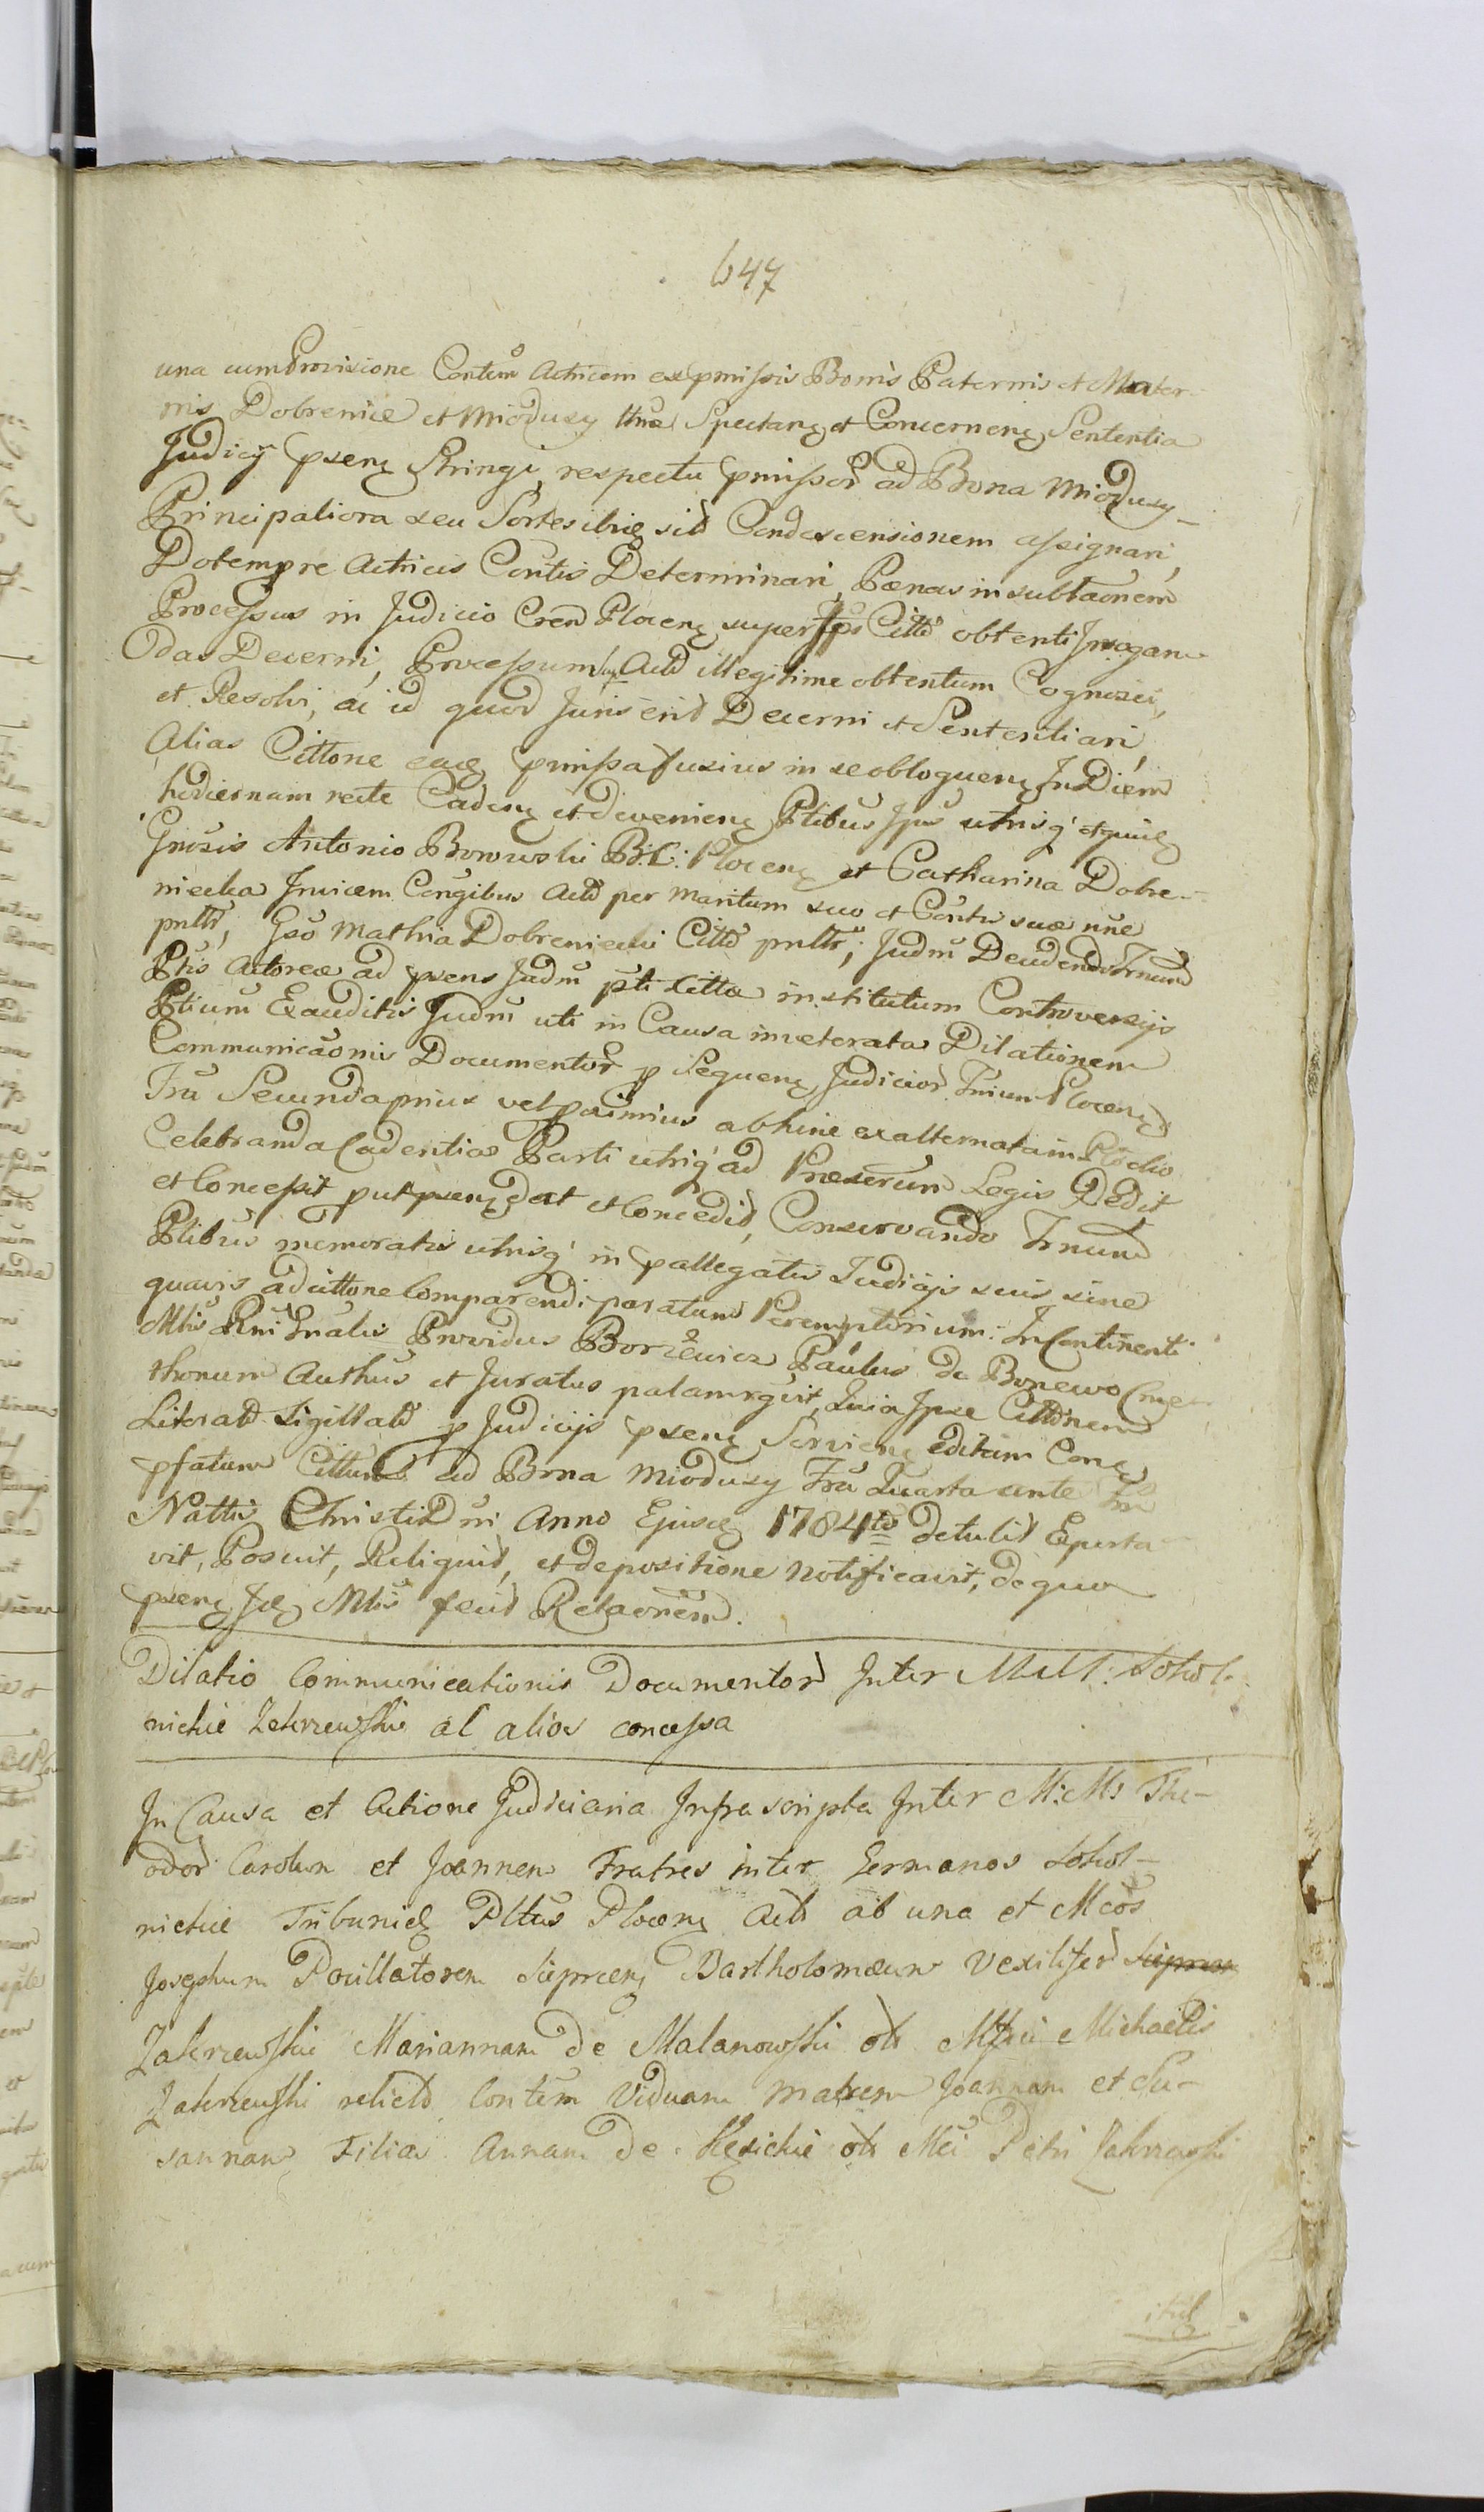 647
una cum Provisione Contem Actricem ex pmissis Bonis Paternis et Mater-
nis Dobrenice et Miodusy ttna Spectang et Concerneng Sententia
Judicij pseng Stringi, respectu pmissor ad Bona Miodusy
Principaliora seu Sortes ibiq sitt Condescensionem assignari,
Dotem pre Actricis Contis Determinari, Pænas in sublaonem
Processus in Judicio Cren Ploceng super Ips Citto obtenti Irrogan-
das Decerni, Processum Actt illegitime obtentum Cognosci,
et Resolvi, ac id quod Juris erit Decerni et Sententiari,
Alias Cittone eaq pmissa fusius in se obloqueng In Diem
hodiernam recte Cadeng et devening Ptibus Ips utrisq
Gnosis Antonio Borowski B: C: Ploceng et Catharina Dobre-
niecka Invicem Congibus Actt per Maritum suo et Contis suæ nne
pntte, Gso Mathia Dobreniecki Citto pntte; Judm Decidendo Trnum
Ptis Actoreæ ad psens Judm pti Citto institutum Controversijs
Ptium Exauditis Judm uti in Causa inveterata Dilationem
Communicaonis Documentor p Sequeng Judicior Trium Ploceng
Fra Secunda prius vel proximius abhinc ex alternata in Plocko
Celebranda Cadentias Parti utriq ad Præscrum Legis Dedit
et Concessit put pseng dat et Concedit, Conservando Trnum
Ptibus memoratis utrisq in pallegatis Judicijs suis sine
quavis adcittone Comparendi paratum Peremptorium: In Continenti
Mtis Rni Gnalis Providus Borzewicz Paulus de Bonewo Cme-
thonum Authus et Juratus palam rgvit, Quia Ipse Cittonem
Literatt Sigillatt p Judicijs pseng Servieng editam Cong
pfatum Cittum ad Bona Miodusy Fra Quarta ante Fm
Nattis Christi Dni Anno Ejusq 1784to detulit Eporta-
vit, Posuit, Reliquit, et depositione notificavit, de quo
pseng Jq Mtis fecit Relaonem.
Dilatio Communicationis Documentor Inter MM: Sokol-
nickie Zakrzewskie al alios concessa
In Causa et Actione Judiciaria Infrascripta Inter M:M: The-
odor Carolum et Joannem Fratres inter Germanos Sokol-
nickie Tribunid Pltus Ploceng Actt ab una et Mcos
Josephum Pocillatorem Sieprceng Bartholomæum Vexilifer
Zakrzewskie Mariannam de Malanowski olt Mfici Michaelis
Zakrzewski relictt Contem Viduam matrem Joannam et Su-
sannam Filias Annam de Kęsickie olt Mci Petri Zakrzewski